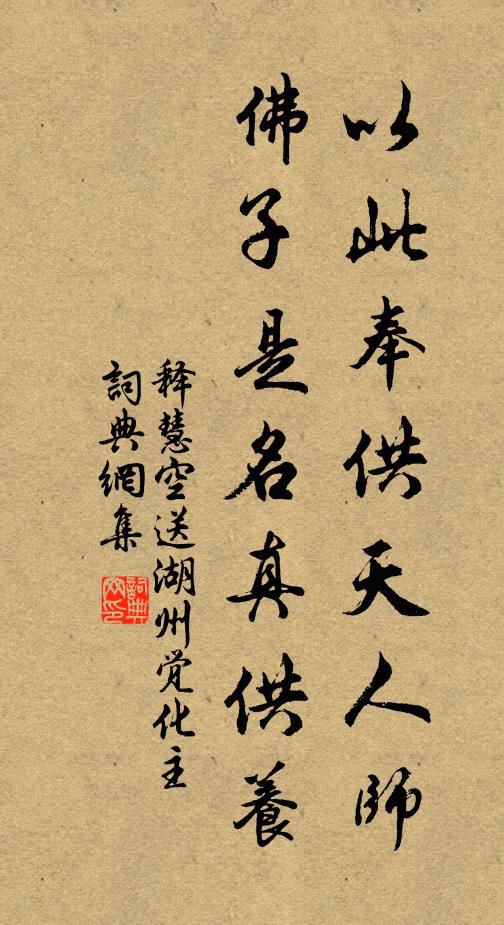 以此奉供天人師
佛子是名真供養
释慧空送湖州觉化主
詞典網集
詞典网印